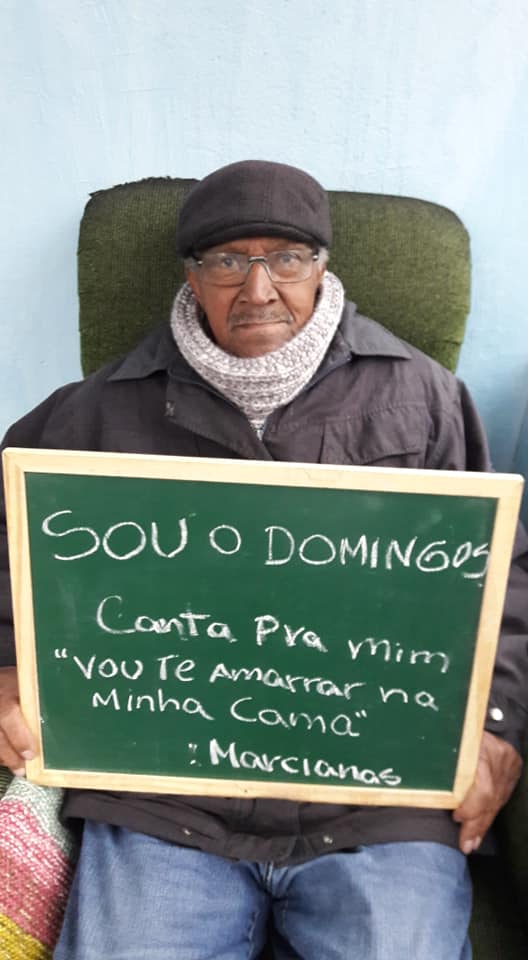 SOU O DOMINGOS
Canta Pra mim
"VOU Te Amarrar na
Minha Cama"
: Marcianas